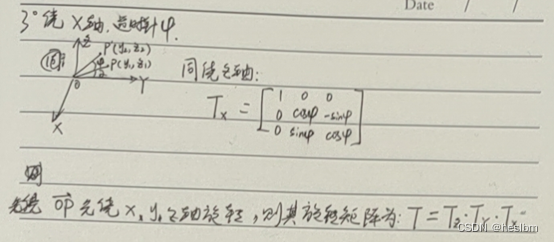 Date / /
3° 绕X轴,逆时针φ.
Z
P'(y₂,z₂)
P(y₁,z₁)
O
Y
X
同绕z轴:
Tx = [1 0 0
0 cosφ -sinφ
0 sinφ cosφ]
则
OP先绕X,y,z轴旋转,则其旋转矩阵为: T = Tz·Ty·Tx
CSDN @heslbm